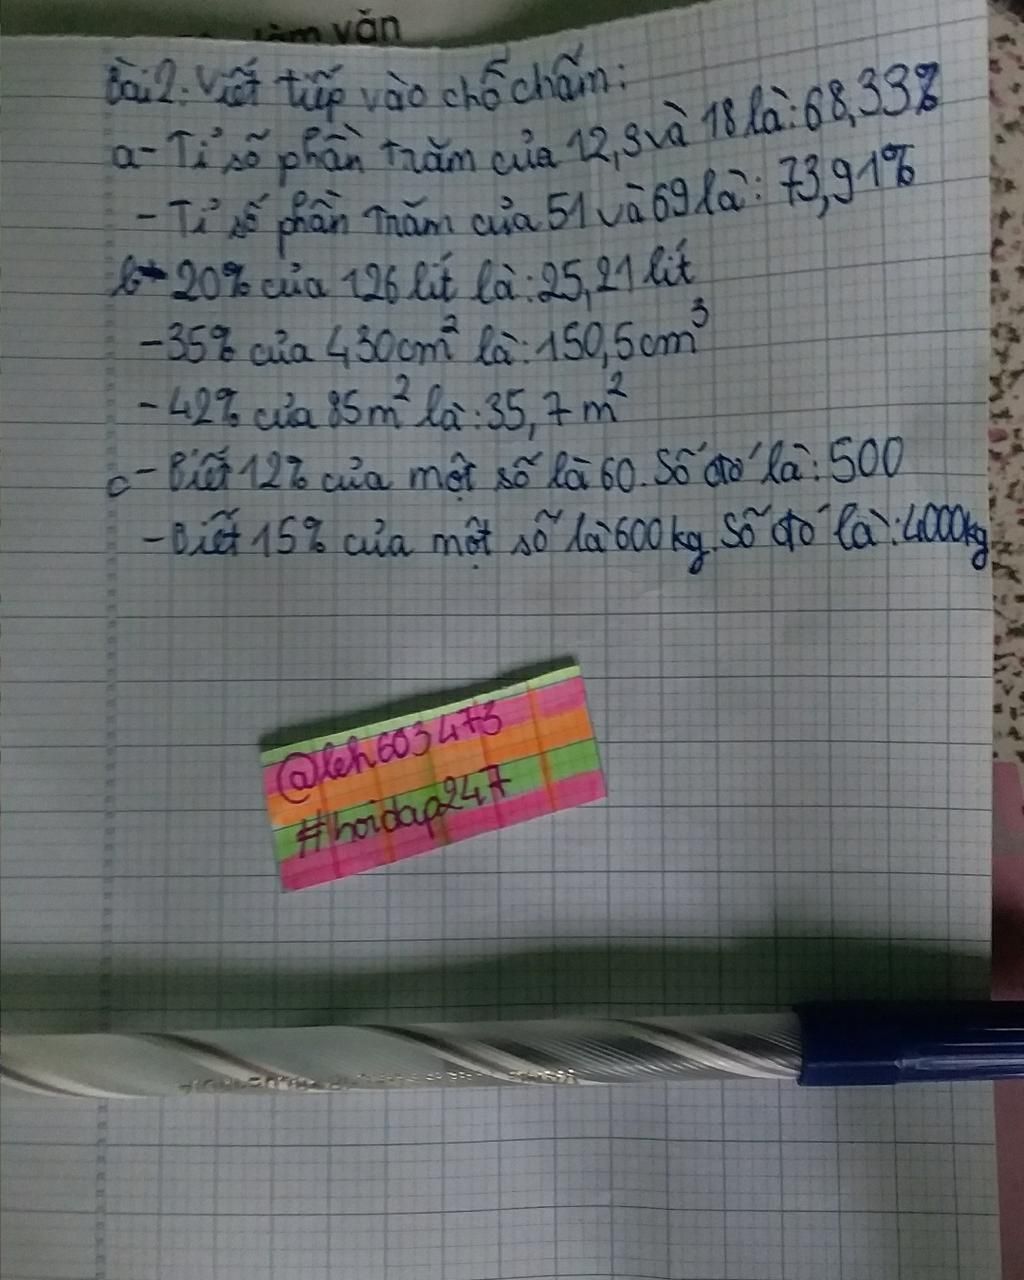 làm văn
Bài 2: Viết tiếp vào chỗ chấm:
a- Tỉ số phần trăm của 12,3 và 18 là: 68,33%
- Tỉ số phần trăm của 51 và 69 là: 73,91%
b- 20% của 126 lít là: 25,21 lít
- 35% của 430cm² là: 150,5cm³
- 42% của 85m² là: 35,7 m²
c- Biết 12% của một số là 60. Số đó là: 500
- Biết 15% của một số là 600 kg. Số đó là: 4000kg
@leh603473
#hoidap247